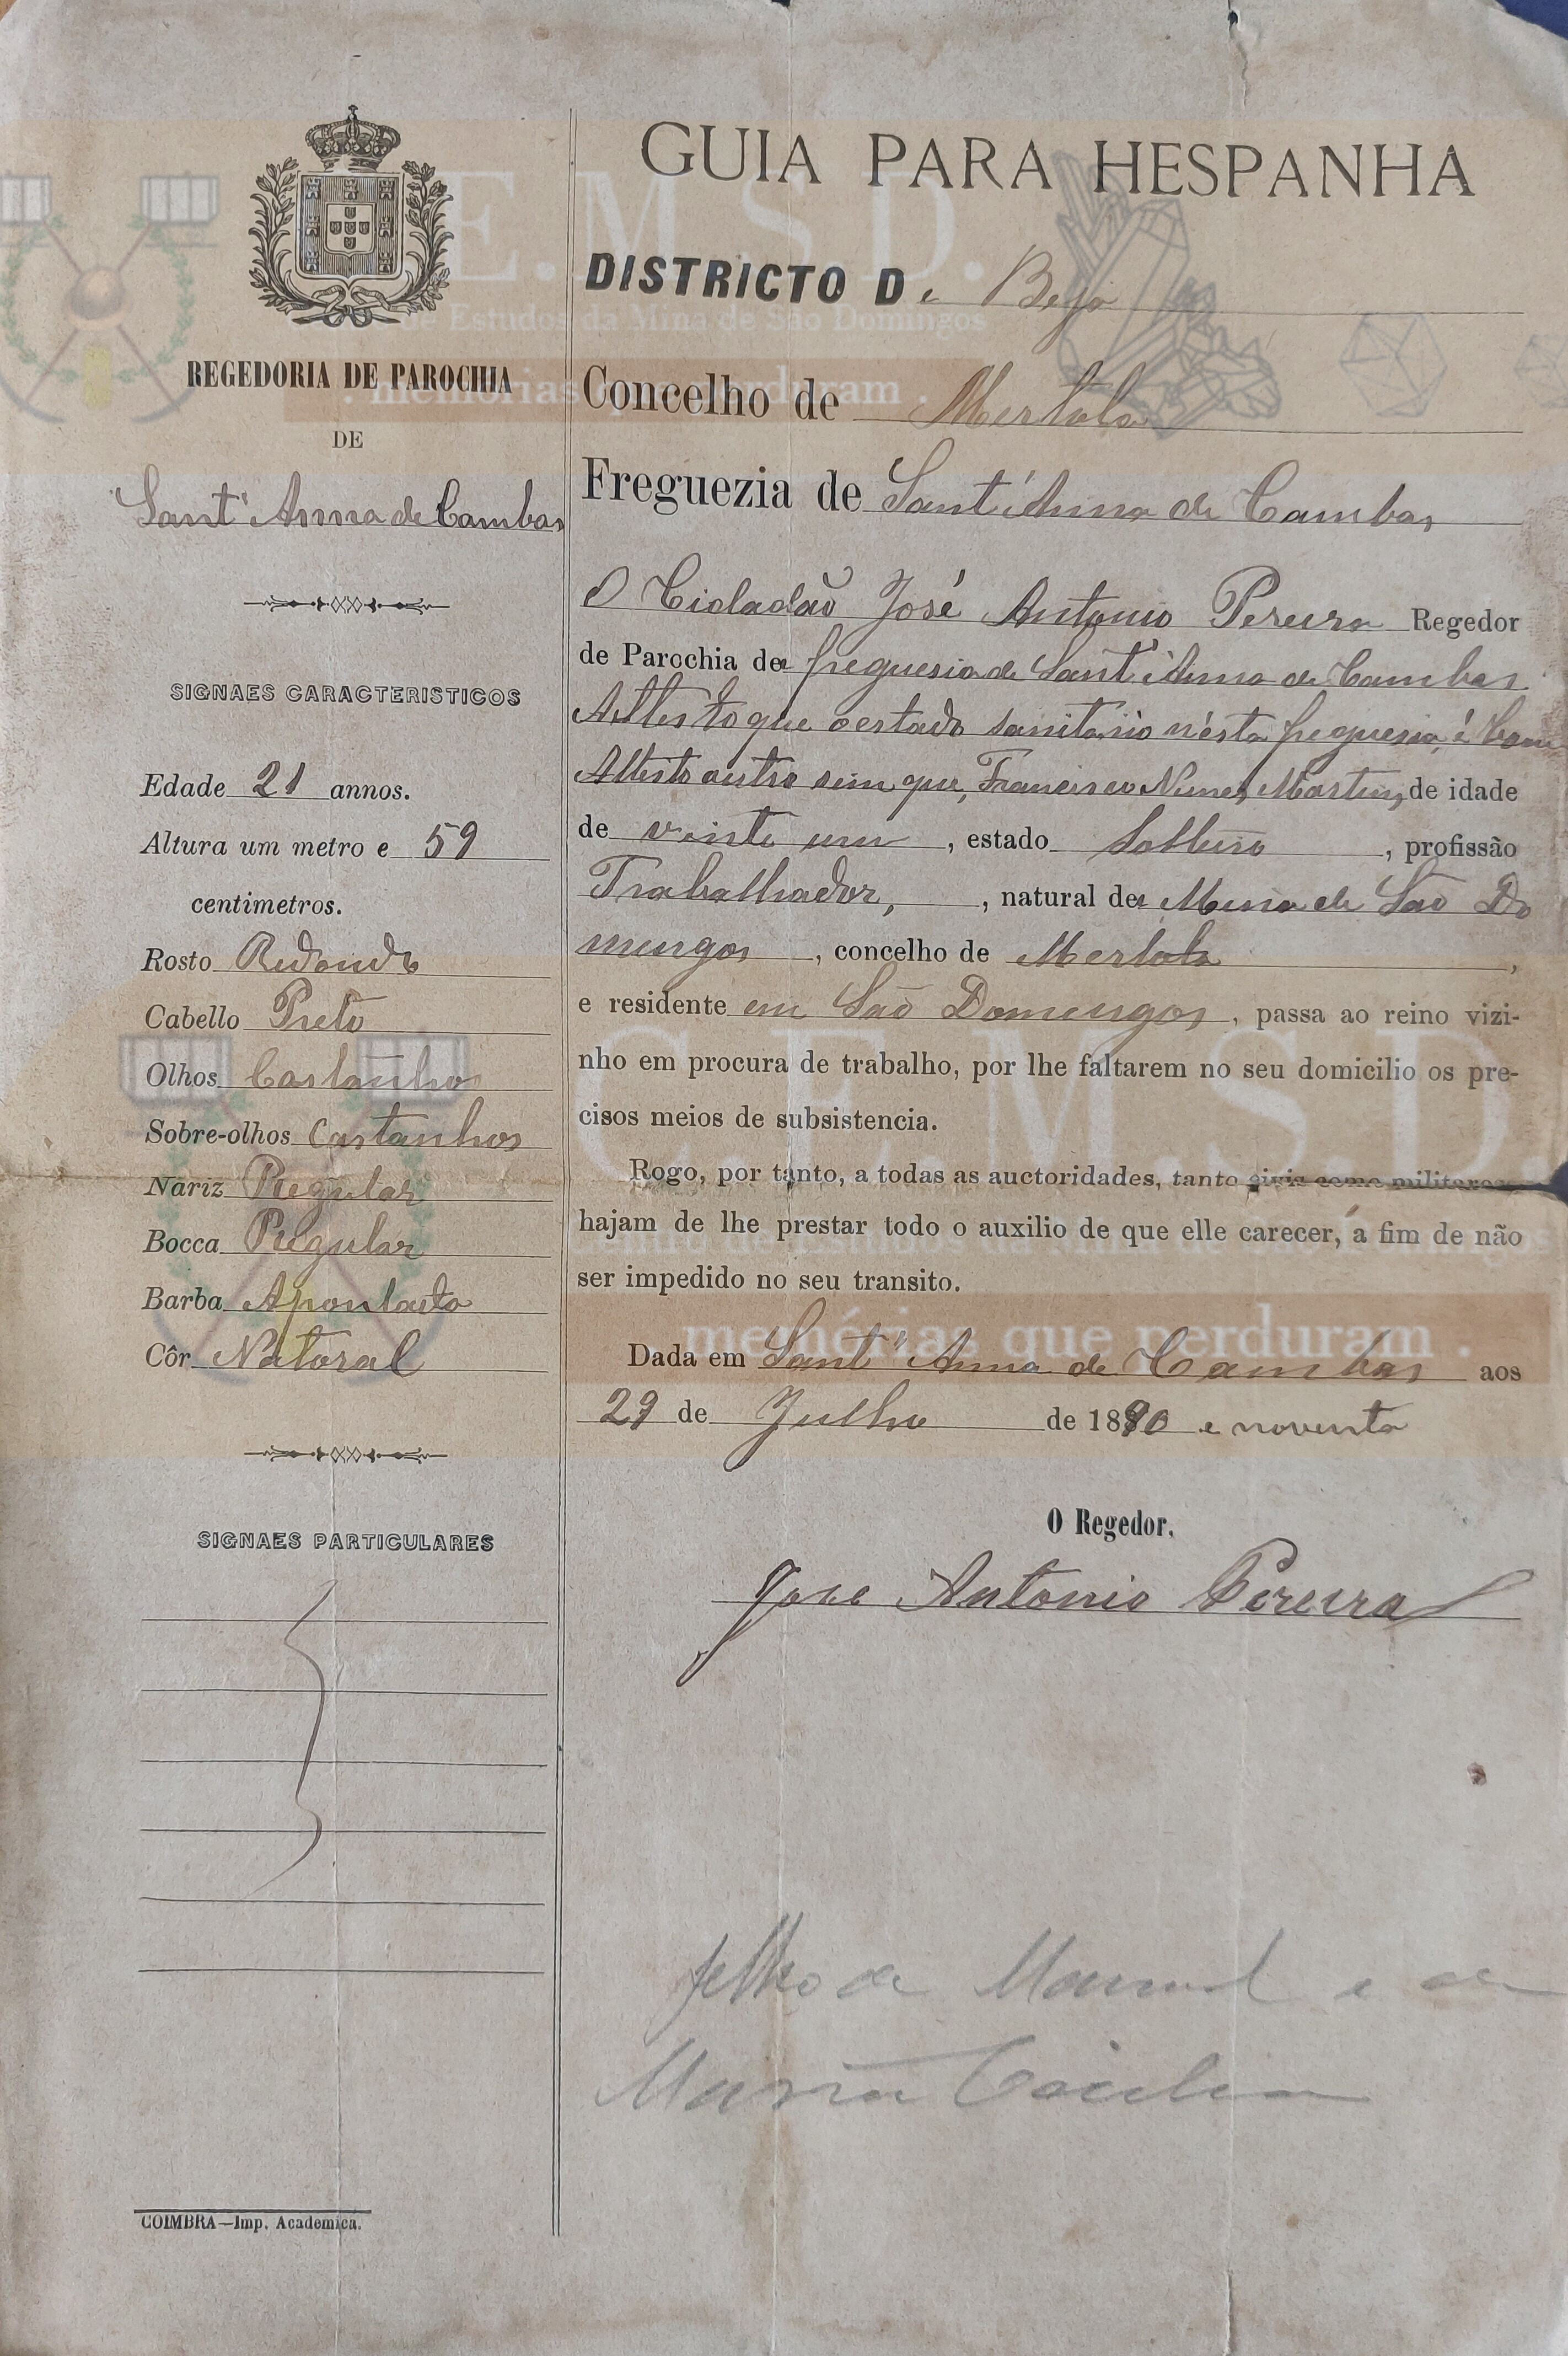 REGEDORIA DE PAROCHIA
DE
Sant'Anna de Cambas
SIGNAES CARACTERISTICOS
Edade 21 annos.
Altura um metro e 59
centimetros.
Rosto Redondo
Cabello Preto
Olhos Castanhos
Sobre-olhos Castanhos
Nariz Regular
Bocca Regular
Barba Apontada
Côr Natoral
SIGNAES PARTICULARES
COIMBRA—Imp. Academica.
GUIA PARA HESPANHA
DISTRICTO De Beja
Concelho de Mertola
Freguezia de Sant'Anna de Cambas
O Cidadão José Antonio Pereira Regedor
de Parochia da freguesia de Sant'Anna de Cambas
Attesto que o estado sanitario n'esta freguesia é bom
Attesto outro sim que, Francisco Nunes Martins, de idade
de vinte um, estado Solteiro, profissão
Trabalhador, , natural da Mina de São Do
mingos, concelho de Mertola,
e residente em São Domingos, passa ao reino vizi-
nho em procura de trabalho, por lhe faltarem no seu domicilio os pre-
cisos meios de subsistencia.
Rogo, por tanto, a todas as auctoridades, tanto civis como militares,
hajam de lhe prestar todo o auxilio de que elle carecer, a fim de não
ser impedido no seu transito.
Dada em Sant'Anna de Cambas aos
29 de Julho de 1890 e noventa
O Regedor,
Jose Antonio Pereira
filho de Manuel e de
Maria Cecilia
E. M. S. D.
de Estudos da Mina de São Domingos
. memórias que perduram .
C. E. M. S. D.
memórias que perduram .